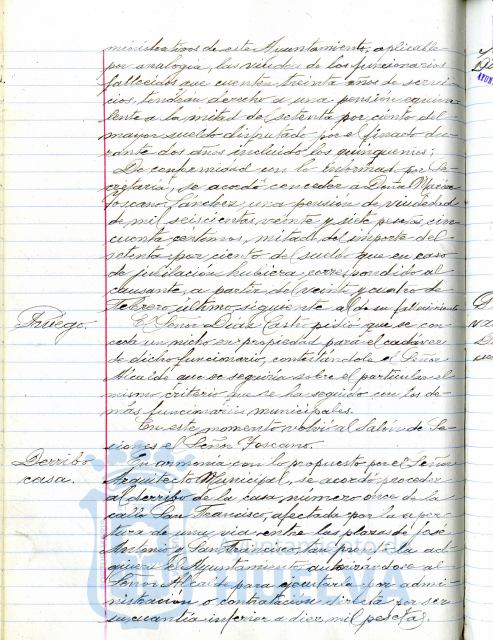 ministrativos de este Ayuntamiento; aplicable
por analogía, las viudas de los funcionarios
fallecidos que cuenten treinta años de servi-
cios, tendrán derecho a una pensión equiva-
lente a la mitad de setenta por ciento del
mayor sueldo disfrutado por el finado du-
rante dos años incluido los quinquenios;
De conformidad con lo informado por Se-
cretaría, se acordó conceder a Doña María
Toscano Sánchez una pensión de viudedad
de mil seiscientas veinte y siete pesetas, cin-
cuenta céntimos, mitad del importe del
setenta por ciento del sueldo que en caso
de jubilación hubiera correspondido al
causante, a partir del veinte y cuatro de
Febrero último, siguiente al de su fallecimiento
Ruego.
El Señor Duar Castro pidió que se con-
ceda un nicho en propiedad para el cadáver
de dicho funcionario, contestándole el Señor
Alcalde que se seguiría sobre el particular el
mismo criterio que se ha seguido con los de-
más funcionarios municipales.
En este momento volvió al Salón de Se-
siones el Señor Toscano.
Derribo
casa.
En armonía con lo propuesto por el Señor
Arquitecto Municipal, se acordó proceder
al derribo de la casa número once de la
calle San Francisco, afectada por la aper-
tura de una vía entre las plazas de José
Antonio y San Francisco, tan pronto la ad-
quiera el Ayuntamiento autorizándose al
Señor Alcalde para ejecutarla por admi-
nistración o contratación directa por ser
su cuantía inferior a diez mil pesetas.
HUELVA